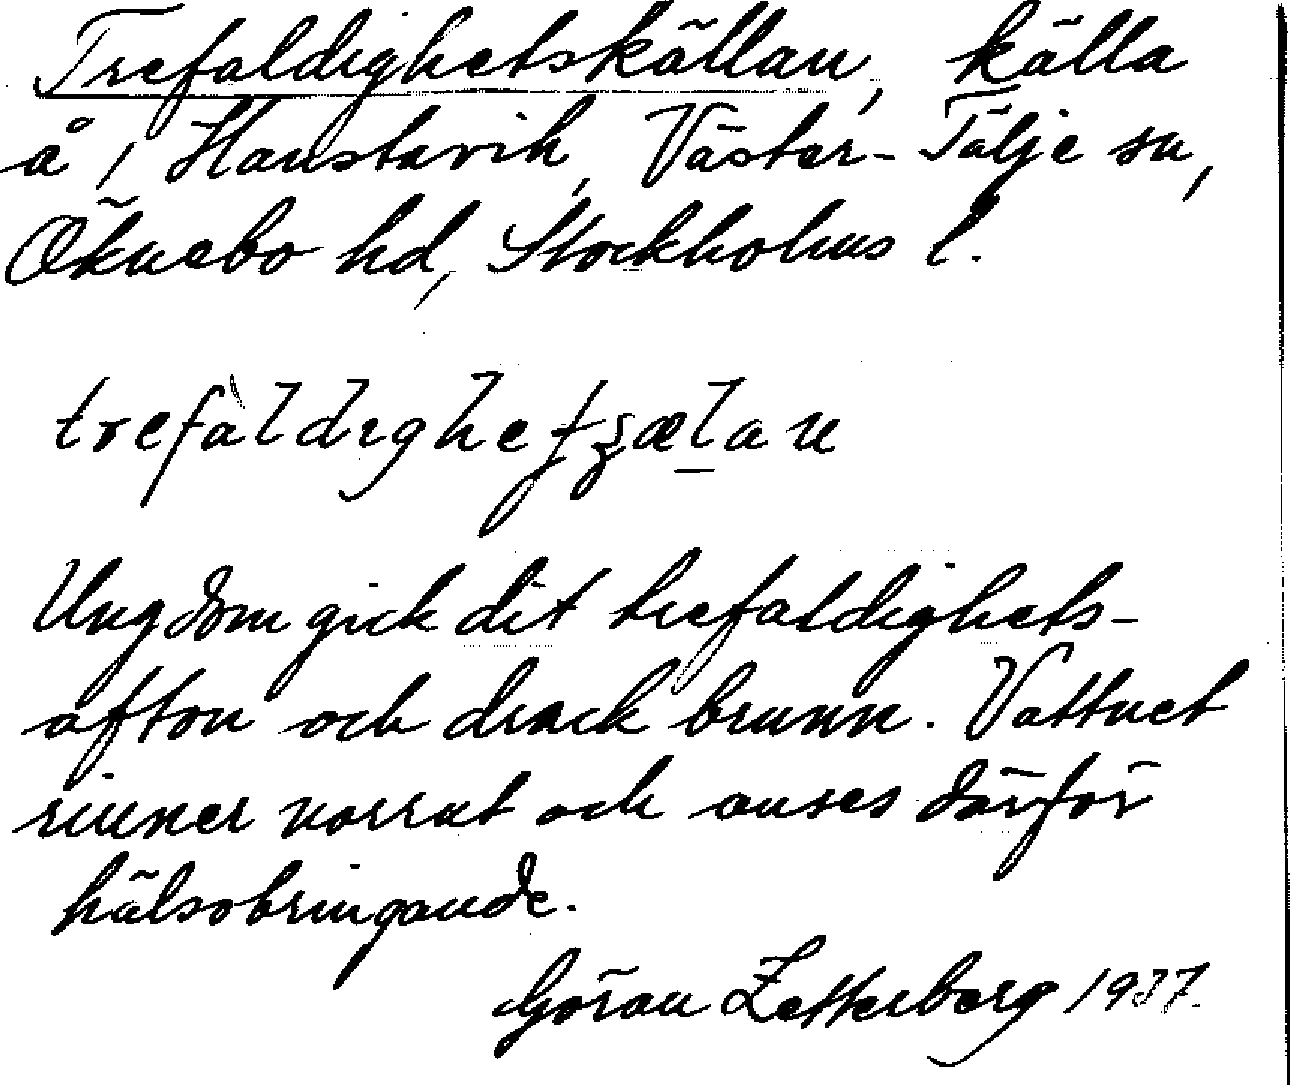 Trefaldighetskällan, källa
å, Hanstavik, Väster-Tälje sn,
Öknebo hd, Stockholms l.
Ungdom gick dit trefaldighets-
afton och drack brunn. Vattnet
rinner norrut och anses därför
hälsobringande.
Göran Zetterberg 1937.